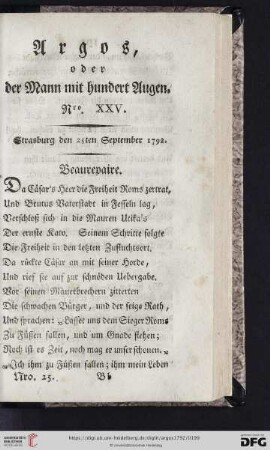 Argos,
oder
der Mann mit hundert Augen.
Nro. XXV.
Strasburg den 25ten September 1792.
Beaurepaire.
Da Cäsar's Heer die Freiheit Roms zertrat,
Und Brutus Vaterstadt in Fesseln lag,
Verschloß sich in die Mauren Utika's
Der ernste Kato. Seinem Schritte folgte
Die Freiheit in den letzten Zufluchtsort.
Da rückte Cäsar an mit seiner Horde,
Und rief sie auf zur schnöden Uebergabe.
Vor seinen Mauerbrechern zitterten
Die schwachen Bürger, und der feige Rath,
Und sprachen: „Lasset uns dem Sieger Roms
Zu Füßen fallen, und um Gnade flehen;
Noch ist es Zeit, noch mag er unser schonen.„
„Ich ihm zu Füßen fallen; ihm mein Leben
Nro. 25. Bb
UNIVERSITÄTS-
BIBLIOTHEK
HEIDELBERG
Gefördert durch
DFG